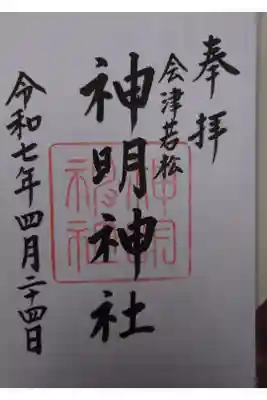 奉拝
会津若松
神明神社
令和七年四月二十四日